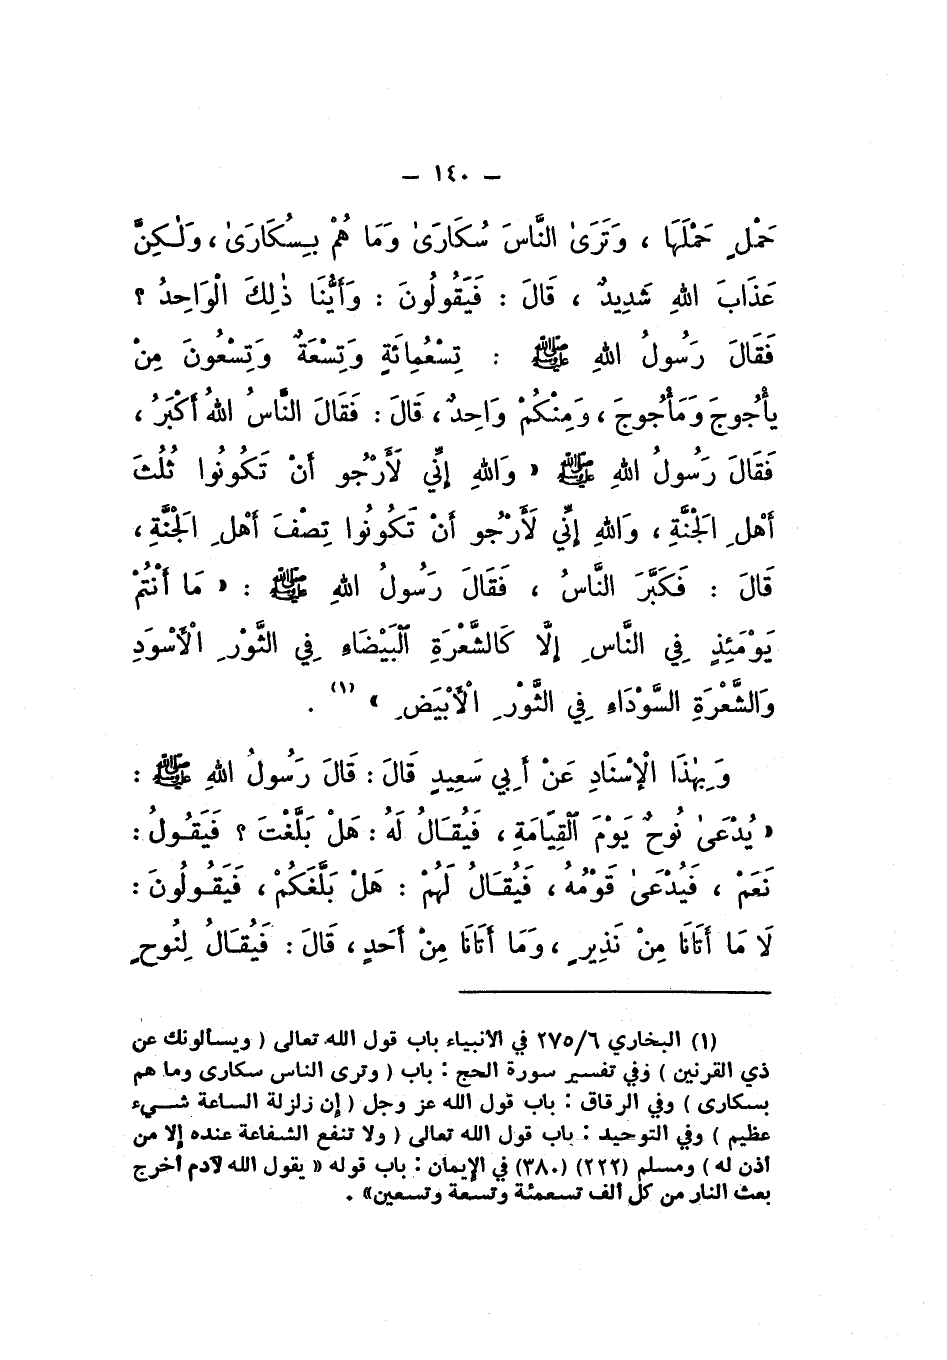 – ١٤٠ –
حَمْلٍ حَمْلَهَا ، وَتَرَىٰ النَّاسَ سُكَارَىٰ وَمَا هُمْ بِسُكَارَىٰ ، وَلٰكِنَّ
عَذَابَ اللهِ شَدِيدٌ ، قَالَ : فَيَقُولُونَ : وَأَيُّنَا ذٰلِكَ الْوَاحِدُ ؟
فَقَالَ رَسُولُ اللهِ ﷺ : تِسْعُمِائَةٍ وَتِسْعَةٌ وَتِسْعُونَ مِنْ
يأْجُوجَ وَمَأْجُوجَ ، وَمِنْكُمْ وَاحِدٌ ، قَالَ : فَقَالَ النَّاسُ اللهُ أَكْبَرُ ،
فَقَالَ رَسُولُ اللهِ ﷺ « وَاللهِ إِنِّي لَأَرْجُو أَنْ تَكُونُوا ثُلُثَ
أَهْلِ الجَنَّةِ ، وَاللهِ إِنِّي لَأَرْجُو أَنْ تَكُونُوا نِصْفَ أَهْلِ الجَنَّةِ ،
قَالَ : فَكَبَّرَ النَّاسُ ، فَقَالَ رَسُولُ اللهِ ﷺ : « مَا أَنْتُمْ
يَوْمَئِذٍ فِي النَّاسِ إِلَّا كَالشَّعْرَةِ البَيْضَاءِ فِي الثَّوْرِ الْأَسْوَدِ
وَالشَّعْرَةِ السَّوْدَاءِ فِي الثَّوْرِ الْأَبْيَضِ » (١) .
وَبِهٰذَا الْإِسْنَادِ عَنْ أَبِي سَعِيدٍ قَالَ : قَالَ رَسُولُ اللهِ ﷺ :
« يُدْعَىٰ نُوحٌ يَوْمَ القِيَامَةِ ، فَيُقَالُ لَهُ : هَلْ بَلَّغْتَ ؟ فَيَقُولُ :
نَعَمْ ، فَيُدْعَىٰ قَوْمُهُ ، فَيُقَالُ لَهُمْ : هَلْ بَلَّغَكُمْ ، فَيَقُولُونَ :
لَا مَا أَتَانَا مِنْ نَذِيرٍ ، وَمَا أَتَانَا مِنْ أَحَدٍ ، قَالَ : فَيُقَالُ لِنُوحٍ
(١) البخاري ٢٧٥/٦ في الانبياء باب قول الله تعالى ( ويسألونك عن
ذي القرنين ) وفي تفسير سورة الحج : باب ( وترى الناس سكارى وما هم
بسكارى ) وفي الرقاق : باب قول الله عز وجل ( إن زلزلة الساعة شيء
عظيم ) وفي التوحيد : باب قول الله تعالى ( ولا تنفع الشفاعة عنده إلا من
أذن له ) ومسلم (٢٢٢) (٣٨٠) في الإيمان : باب قوله « يقول الله لآدم أخرج
بعث النار من كل ألف تسعمئة وتسعة وتسعين» .